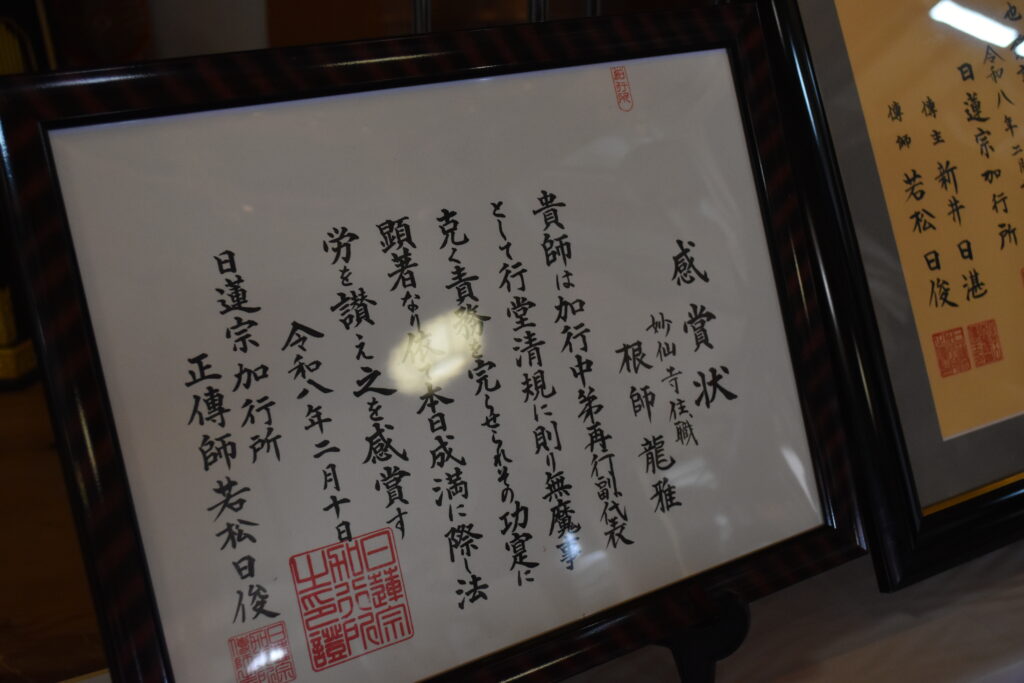 感賞状
妙仙寺住職
根師龍雅
貴師は加行中第再行副代表
として行堂清規に則り無魔事
克く責務を完うせられその功寔に
顕著なり依て本日成満に際し法
労を讃え之を感賞す
令和八年二月十日
日蓮宗加行所
正傳師若松日俊
日蓮宗
加行所
之印證
也
令和八年二月
日蓮宗加行所
傳主 新井日湛
傳師 若松日俊